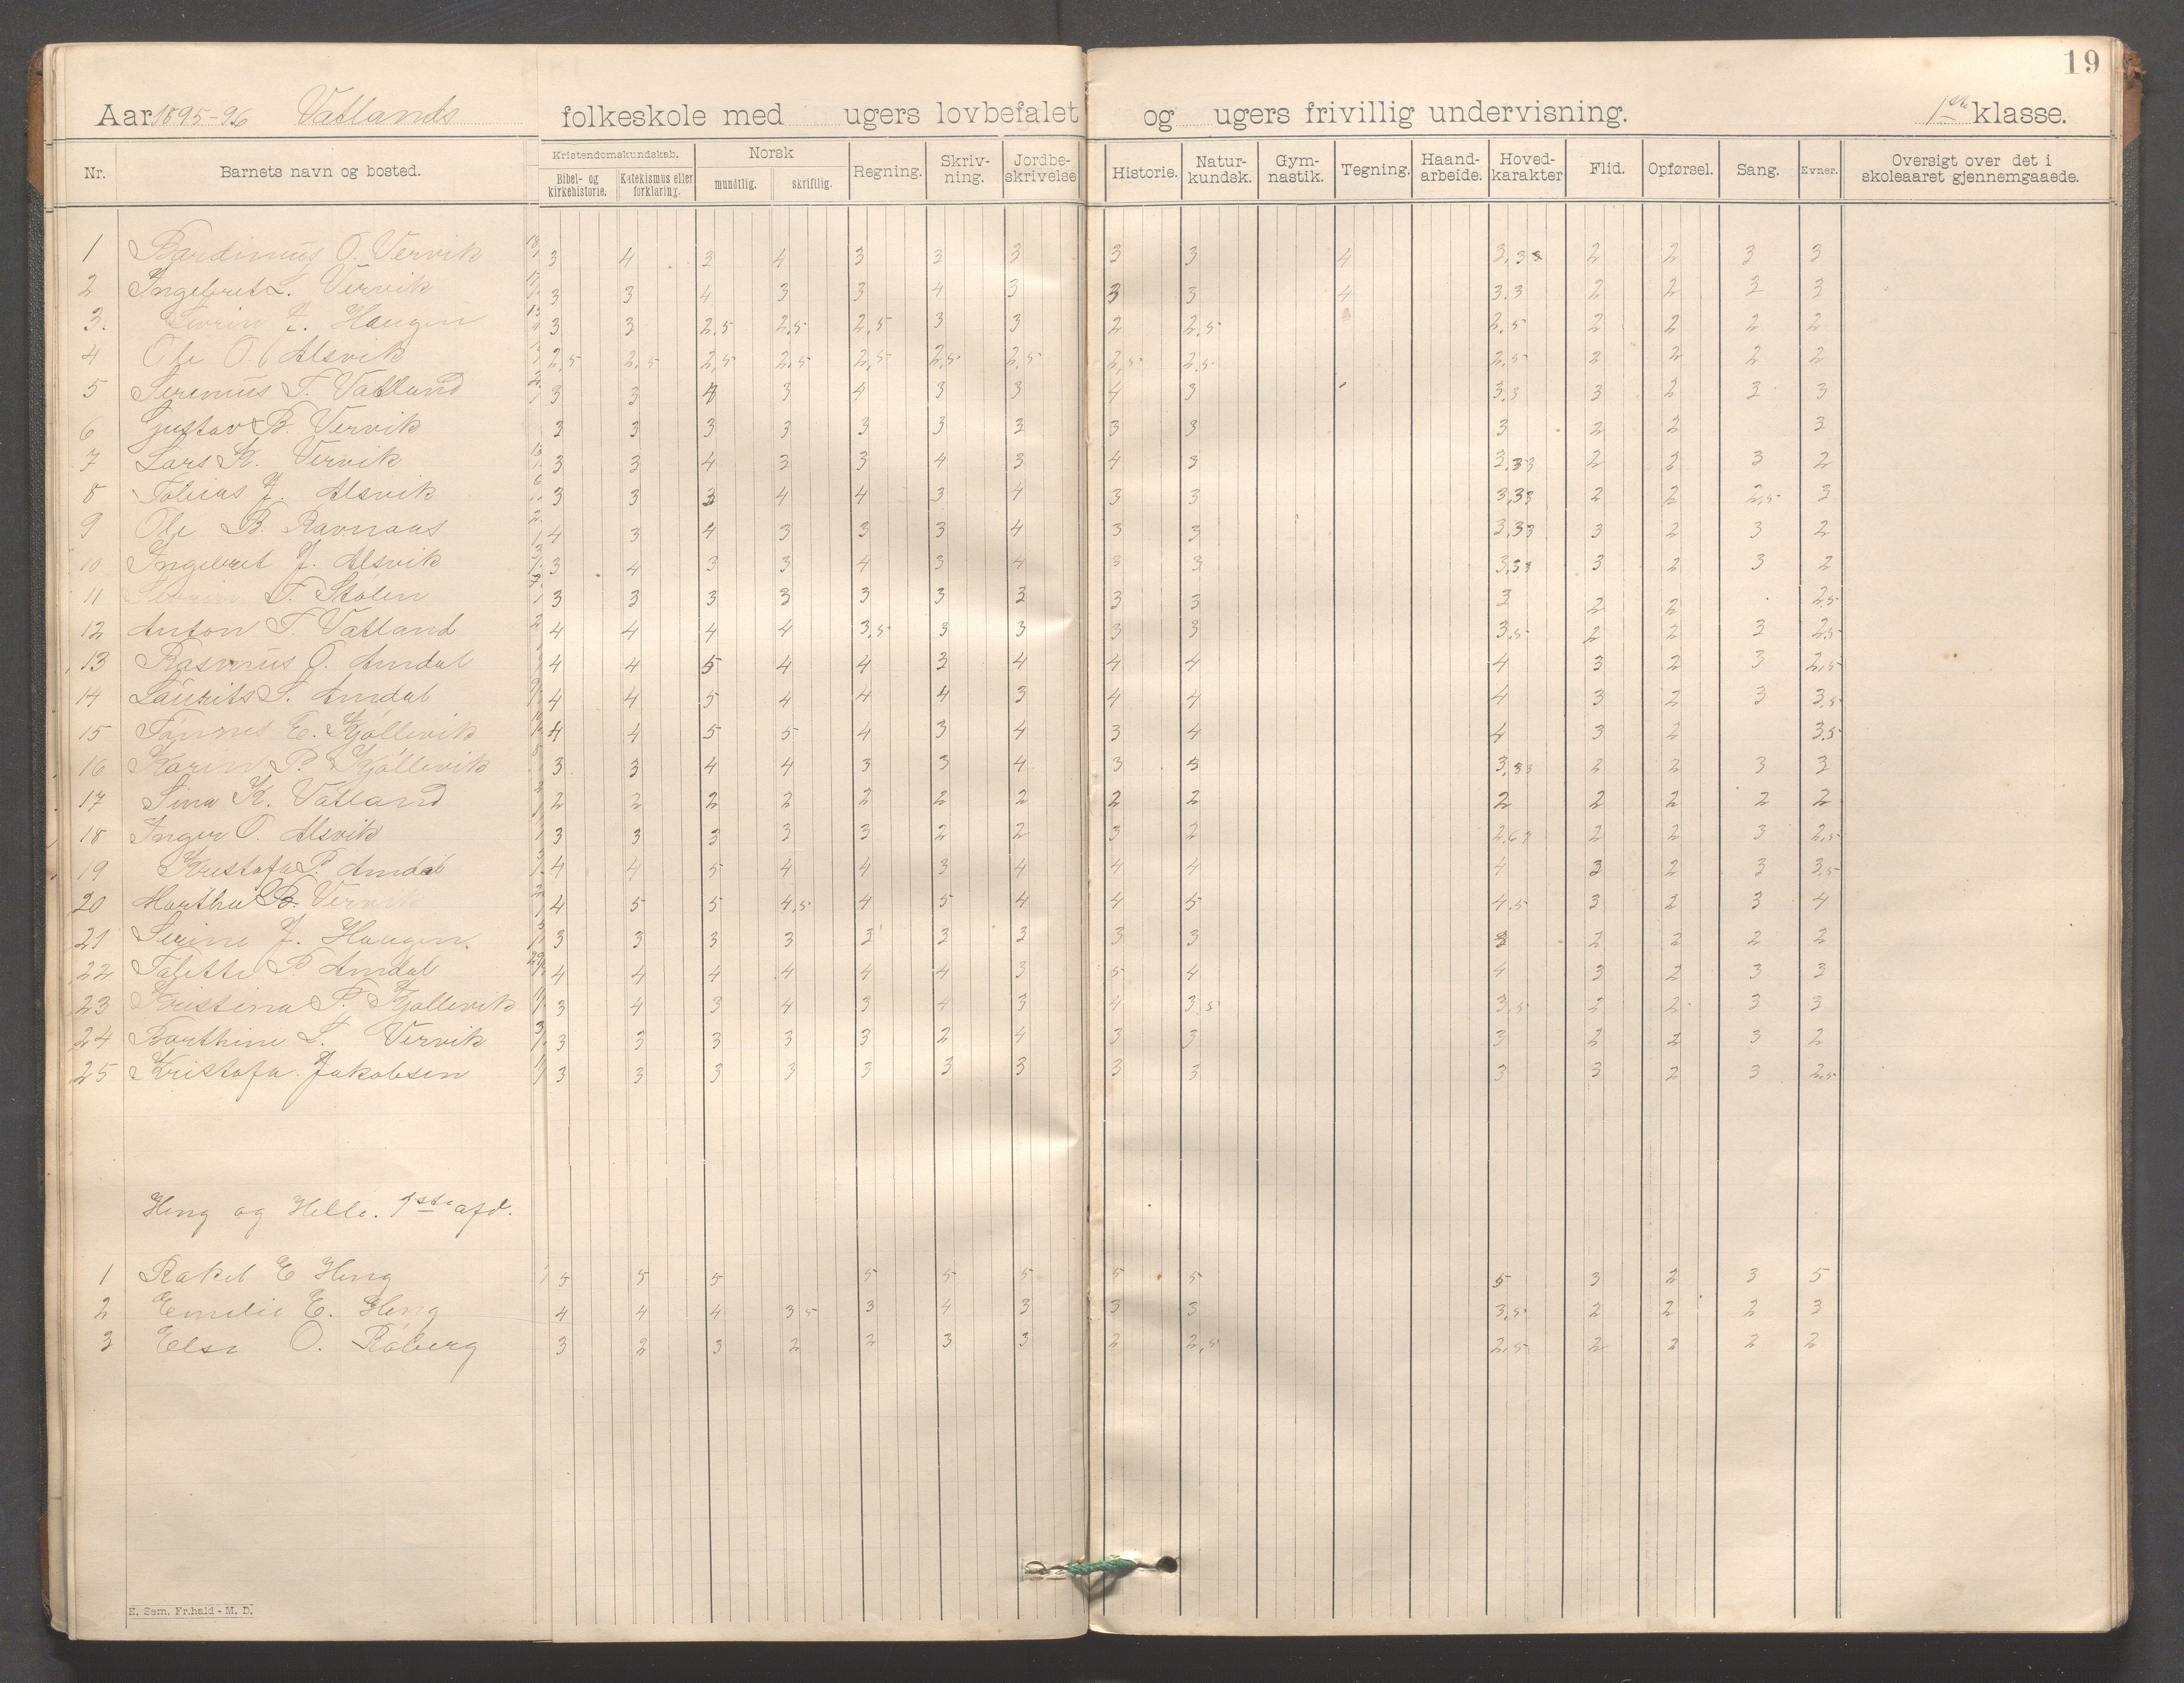 19
Aar 1895-96 Vatlands folkeskole med ugers lovbefalet og ugers frivillig undervisning. 1ste klasse.
Nr. Barnets navn og bosted. Kristendomskundskab. Bibel- og kirkehistorie. Katekismus eller forklaring. Norsk mundtlig. skriftlig. Regning. Skriv-ning. Jordbe-skrivelse Historie. Natur-kundsk. Gym-nastik. Tegning. Haand-arbeide. Hoved-karakter Flid. Opførsel. Sang. Evner. Oversigt over det i skoleaaret gjennemgaaede.
1 Bardinius O. Vervik 3 4 3 4 3 3 3 3 3 4 3,33 2 2 3 3
2 Ingebret L. Vervik 3 3 4 3 3 4 3 3 3 4 3.3 2 2 3 3
3. Sevrin J. Haugen 3 3 2,5 2,5 2,5 3 3 2 2,5 2,5 2 2 2 2
4 Ole O. Alsvik 2,5 2,5 2,5 2,5 2,5 2,5 2,5 2,5 2,5 2,5 2 2 2 2
5 Serenius T. Vatland 3 3 4 3 4 3 3 4 3 3,3 3 2 3 3
6 Gustav B. Vervik 3 3 3 3 3 3 3 3 3 3 2 2 3
7 Lars K. Vervik 3 3 4 3 3 4 3 4 3 3,33 2 2 3 2
8 Tobias J. Alsvik 3 3 3 4 4 3 4 3 3 3,33 2 2 2,5 3
9 Ole B. Ravnaas 4 3 4 3 3 3 4 3 3 3,33 3 2 3 2
10 Ingebret J. Alsvik 3 4 3 3 4 3 4 3 3 3,33 3 2 3 2
11 T. Stølen 3 3 3 3 3 3 3 3 3 3 2 2 2,5
12 Anton T. Vatland 4 4 4 4 3,5 3 3 3 3 3,5 2 2 3 2,5
13 Rasmus O. Amdal 4 4 5 4 4 3 4 4 4 4 3 2 3 2,5
14 Laurits S. Amdal 4 4 5 4 4 4 3 4 4 4 3 2 3 3,5
15 Tønnes E. Kjøllevik 4 4 5 5 4 3 4 3 4 4 3 2 3.5
16 Karin P. Kjøllevik 3 3 4 4 3 3 4 3 3 3,33 2 2 3 3
17 Sina K. Vatland 2 2 2 2 2 2 2 2 2 2 2 2 2 2
18 Inger O. Alsvik 3 3 3 3 3 2 2 3 2 2,63 2 2 3 2,5
19 Kristofa P. Amdal 4 4 5 4 4 3 4 4 4 4 3 2 3 3,5
20 Martha B. Vervik 4 5 5 4,5 4 5 4 4 5 4.5 3 2 3 4
21 Serine J. Haugen. 3 3 3 3 3 3 3 3 3 3 2 2 2 2
22 Talette P. Amdal 4 4 4 4 4 4 3 5 4 4 3 2 3 3
23 Kristina P. Kjøllevik 3 4 3 4 3 4 3 4 3,5 3,5 2 2 3 3
24 Barthine L. Vervik 3 3 3 3 3 2 4 3 3 3 2 2 3 2
25 Kristofa Jakobsen 3 3 3 3 3 3 3 3 3 3 3 2 3 2,5
Heng og Helle. 1ste afd.
1 Rakel E Heng 5 5 5 5 5 5 5 5 5 3 2 3 5
2 Emelie E. Heng 4 4 4 3 5 3 4 3 3 3 3,5 2 2 2 3
3 Else O. Røberg 3 2 3 2 2 3 3 2 2,5 2,5 2 2 2 2
E. Sem, Fr.hald - M. D.